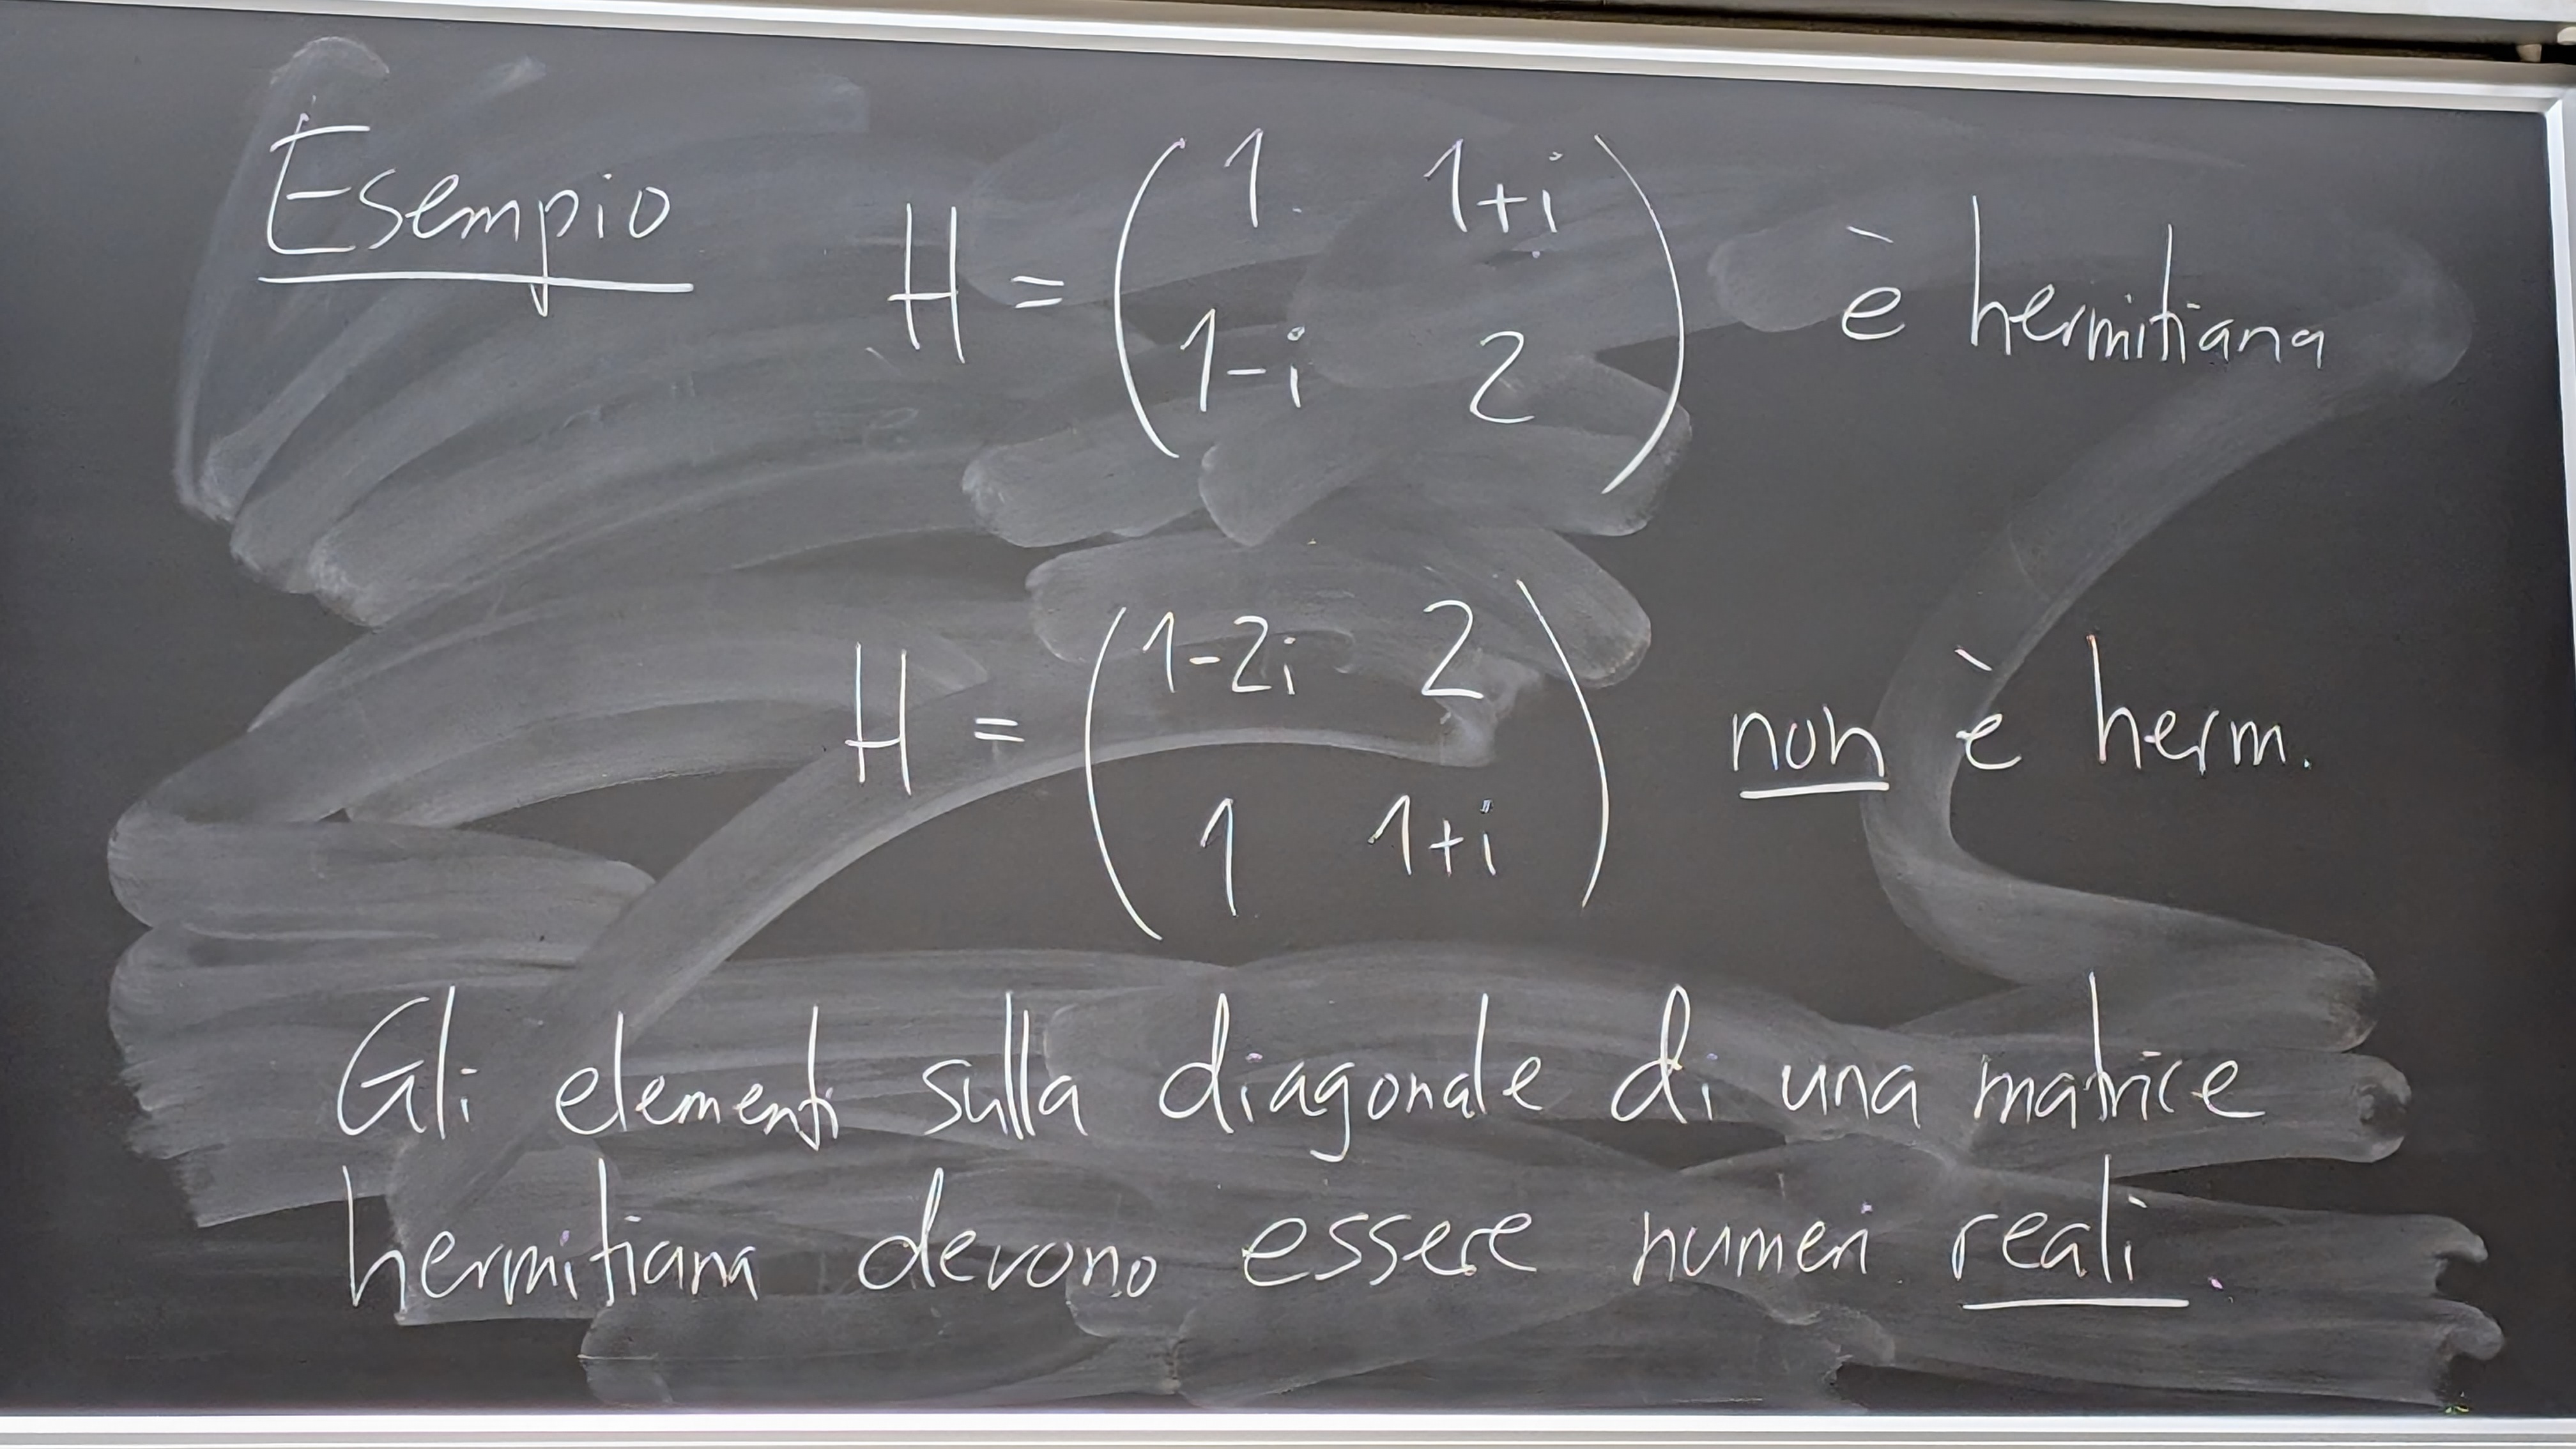 Esempio H = ( 1 1+i ) è hermitiana
1-i 2
H = ( 1-2i 2 ) non è herm.
1 1+i
Gli elementi sulla diagonale di una matrice
hermitiana devono essere numeri reali.